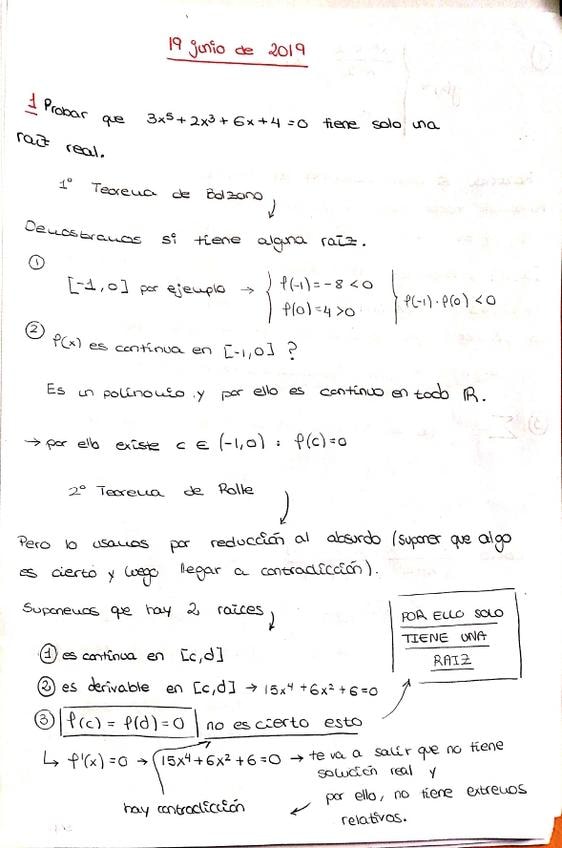 19 junio de 2019
1 Probar que 3x⁵+2x³+6x+4=0 tiene solo una
raíz real.
1º Teorema de Bolzano
Demostramos si tiene alguna raíz.
① [-1,0] por ejemplo → { f(-1)=-8<0
f(0)=4>0 } f(-1)·f(0)<0
② f(x) es continua en [-1,0]?
Es un polinomio y por ello es continuo en todo ℝ.
→ por ello existe c ∈ (-1,0) : f(c)=0
2º Teorema de Rolle
Pero lo usamos por reducción al absurdo (suponer que algo
es cierto y luego llegar a contradicción).
Suponemos que hay 2 raíces
① es continua en [c,d]
② es derivable en [c,d] → 15x⁴+6x²+6=0
③ f(c) = f(d)=0 no es cierto esto
POR ELLO SOLO
TIENE UNA
RAIZ
↳ f'(x)=0 → 15x⁴+6x²+6=0 → te va a salir que no tiene
solución real y
por ello, no tiene extremos
relativos.
hay contradicción